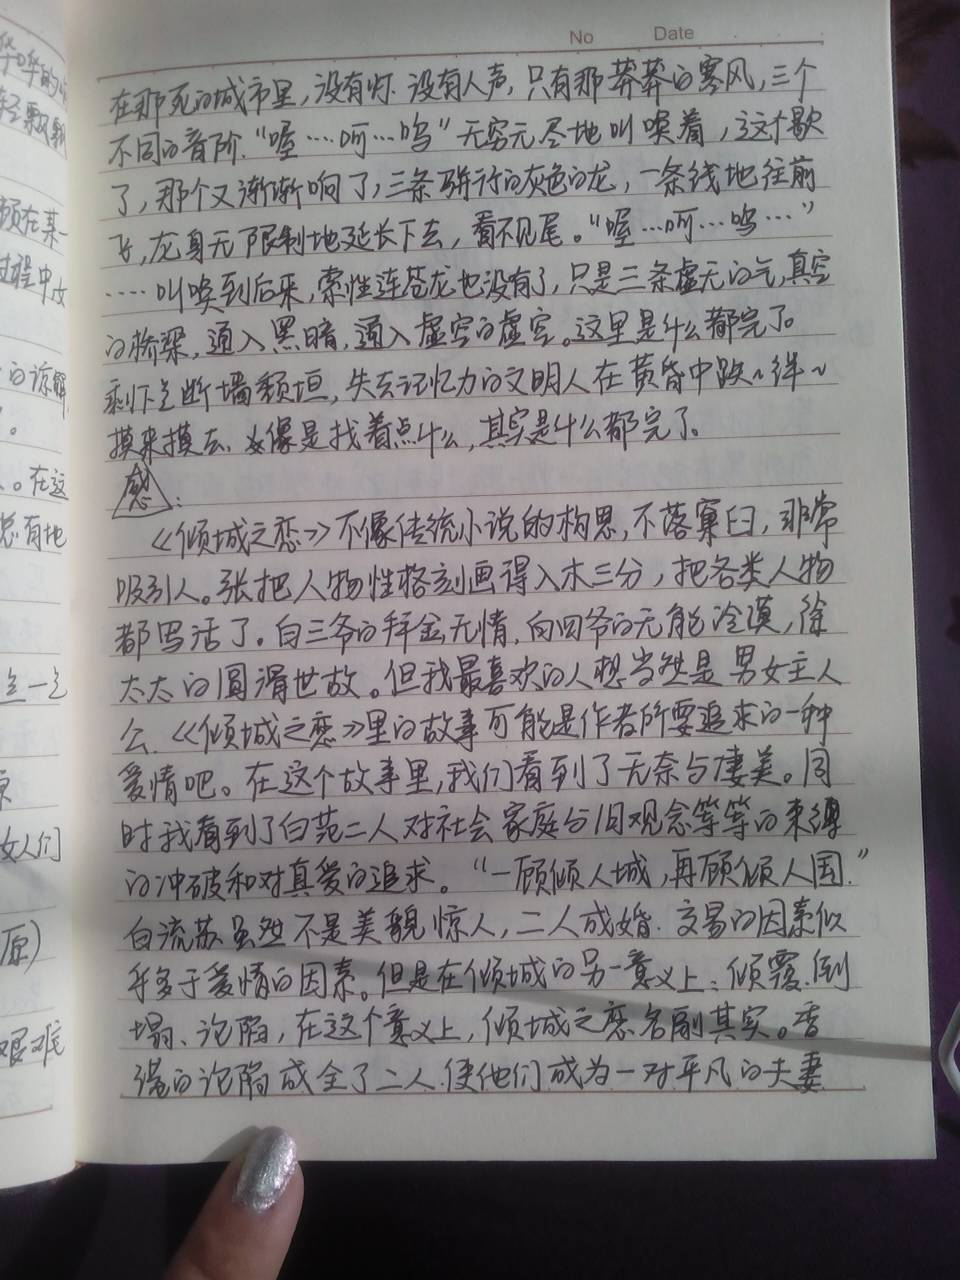 华的
轻飘飘
No Date
在那死的城市里，没有灯.没有人声，只有那莽莽的寒风，三个
不同的音阶.“喔……呵…呜”无穷无尽地叫唤着，这个歇
了，那个又渐渐响了，三条骈行的灰色的龙，一条线地往前
飞，龙身无限制地延长下去，看不见尾。“喔…呵…呜…”
……叫唤到后来，索性连苍龙也没有了，只是三条虚无的气，真空
的桥梁，通入黑暗，通入虚空的虚空。这里是什么都完了。
剩下点断墙颓垣，失去记忆力的文明人在黄昏中跌~绊~
摸来摸去.好像是找着点什么，其实是什么都完了。
感：
《倾城之恋》不像传统小说的构思，不落窠臼，非常
吸引人。张把人物性格刻画得入木三分，把各类人物
都写活了。白三爷的拜金无情.白四爷的无能冷漠，徐
太太的圆滑世故。但我最喜欢的人想当然是男女主人
公.《倾城之恋》里的故事可能是作者所要追求的一种
爱情吧。在这个故事里，我们看到了无奈与凄美。同
时我看到了白范二人对社会家庭与旧观念等等的束缚
的冲破和对真爱的追求。“一顾倾人城，再顾倾人国.”
白流苏虽然不是美貌惊人，二人成婚.交易的因素似
乎多于爱情的因素。但是在倾城的另一意义上：倾覆.倒
塌、沦陷，在这个意义上，倾城之恋名副其实。香
港的沦陷成全了二人.使他们成为一对平凡的夫妻
颓在某一
过程中女
的谅解
。在这
总有地
女人们
原）
艰难